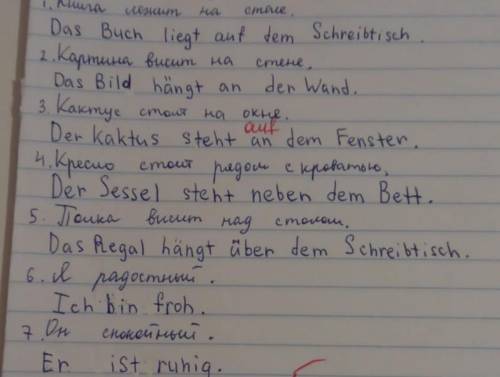 1. Книга лежит на столе.
Das Buch liegt auf dem Schreibtisch.
2. Картина висит на стене.
Das Bild hängt an der Wand.
3. Кактус стоит на окне.
auf
Der Kaktus steht an dem Fenster.
4. Кресло стоит рядом с кроватью.
Der Sessel steht neben dem Bett.
5. Полка висит над столом.
Das Regal hängt über dem Schreibtisch.
6. Я радостный.
Ich bin froh.
7. Он спокойный.
Er ist ruhig.